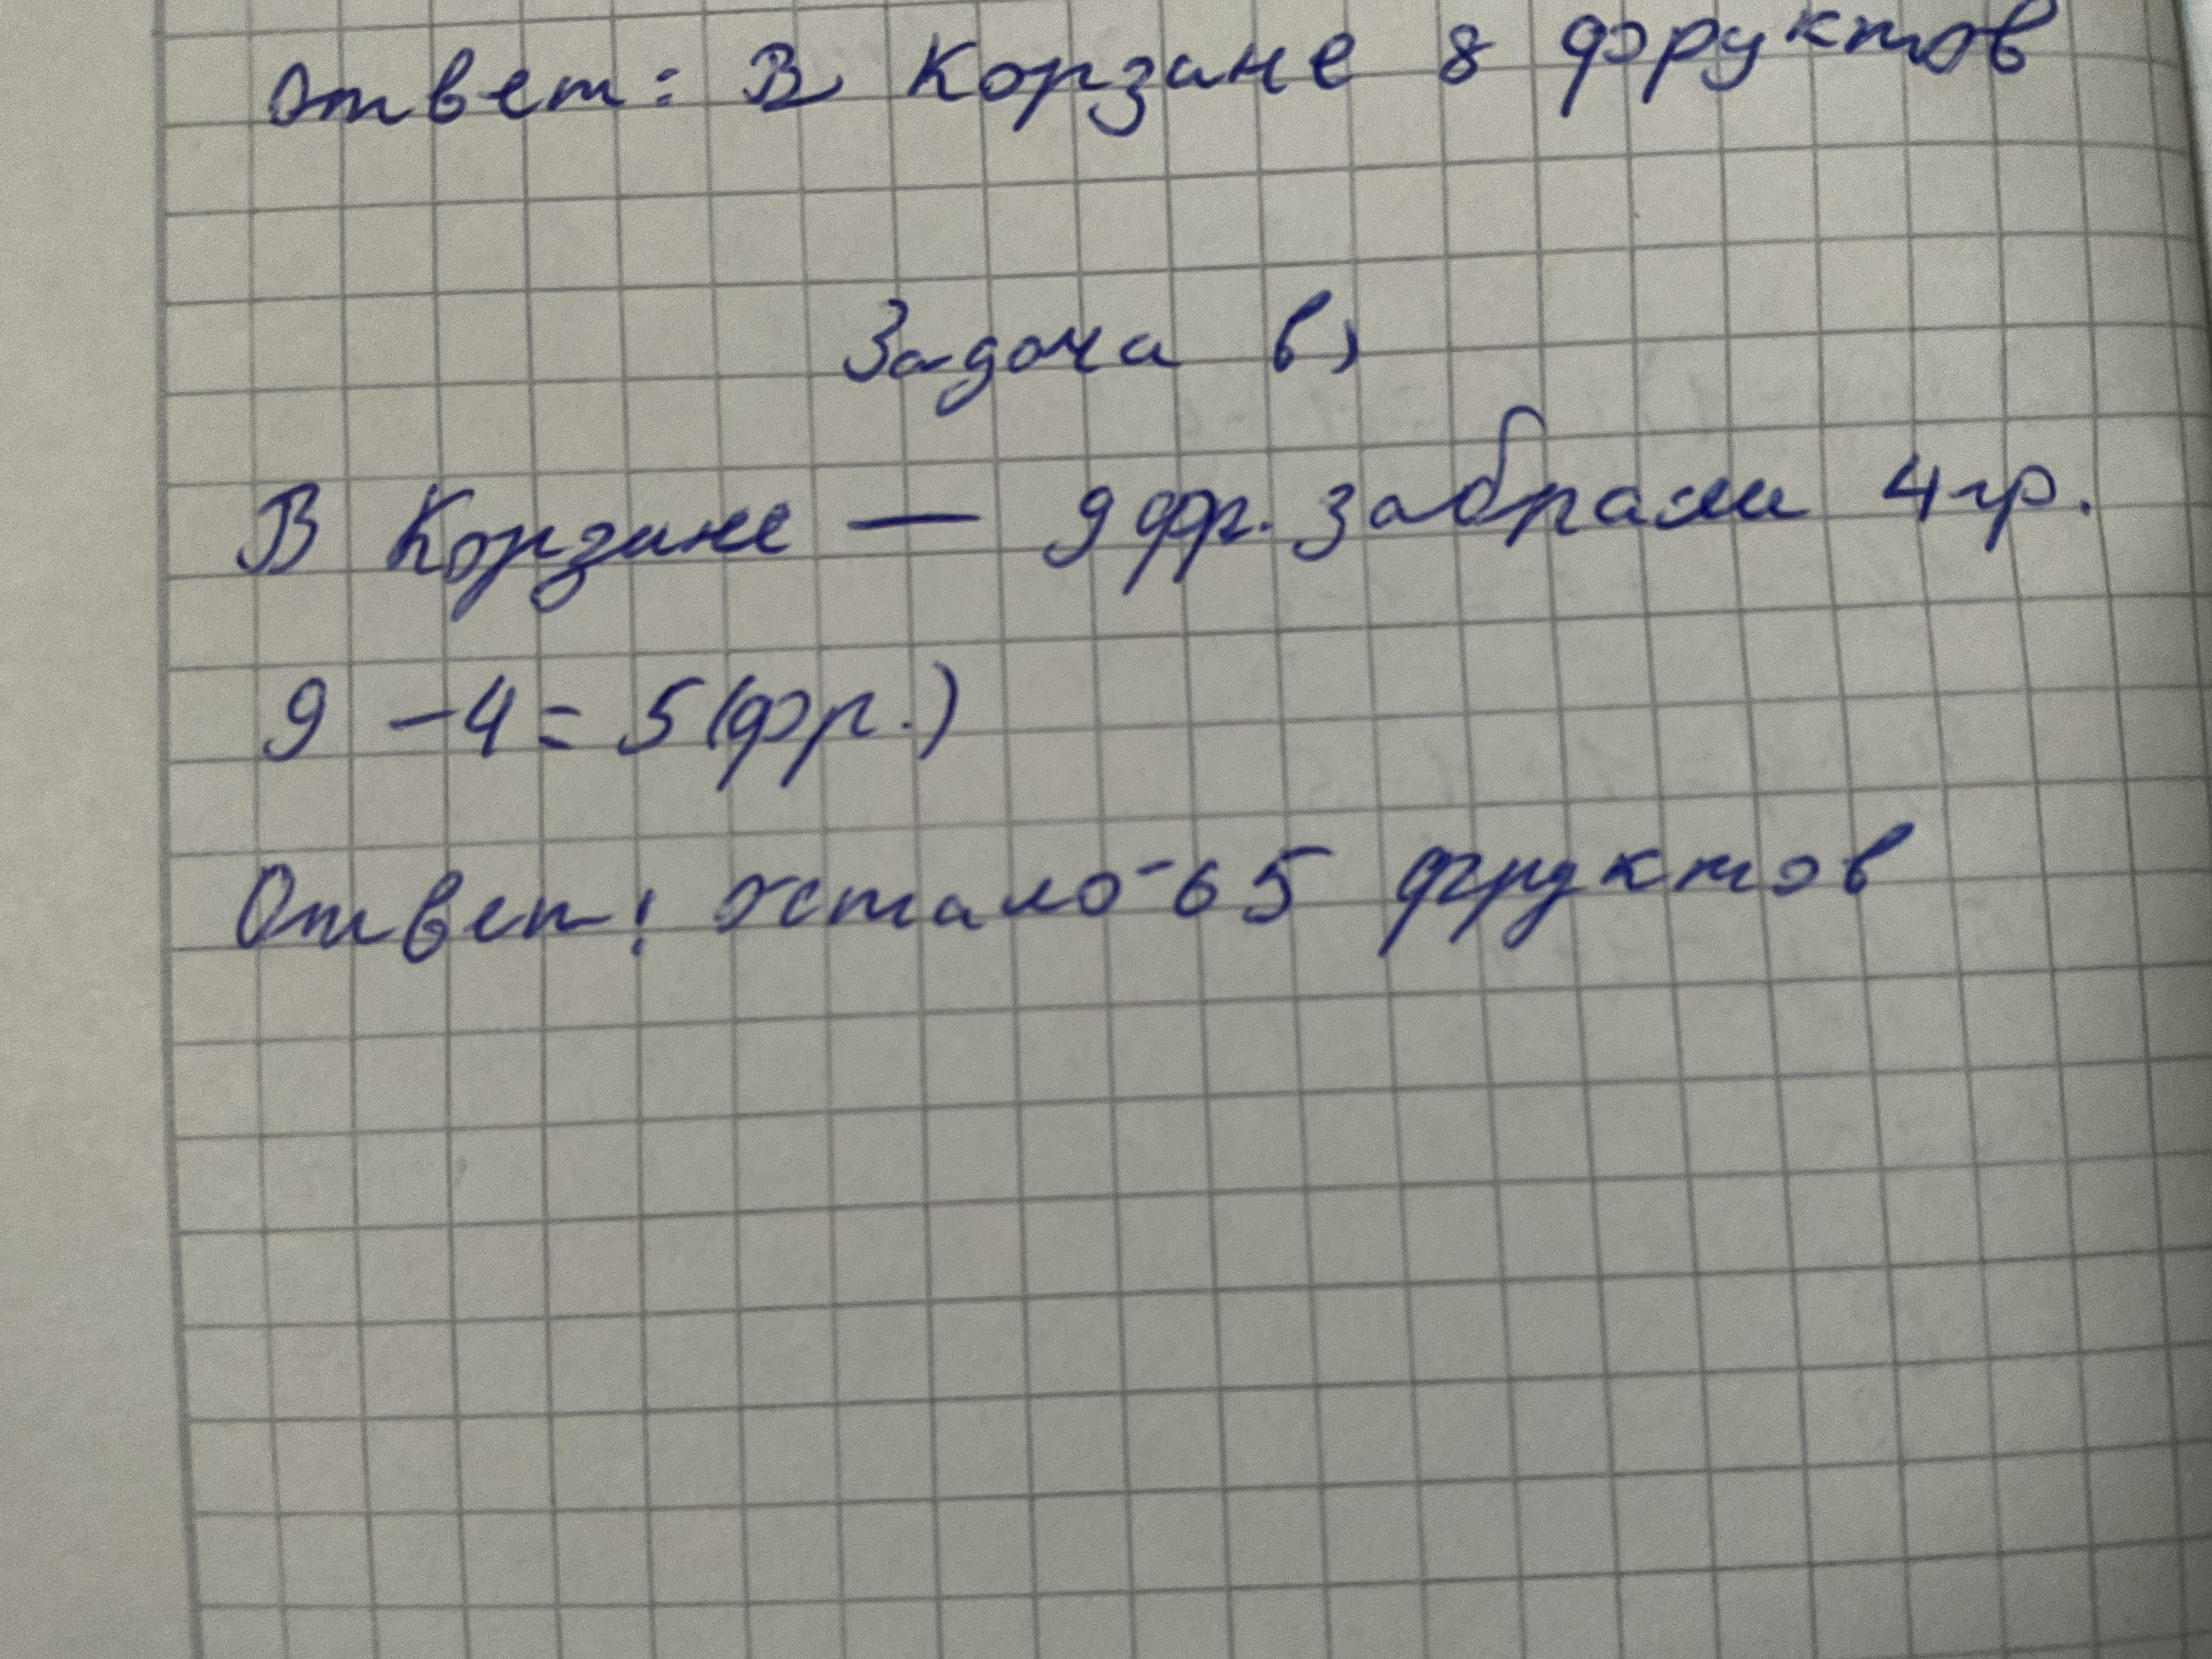 Ответ: В Корзине 8 фруктов
Задача в)
В Корзине — 9 фр. забрали 4 гр.
9 - 4 = 5 (фр.)
Ответ: остало-сь 5 фруктов